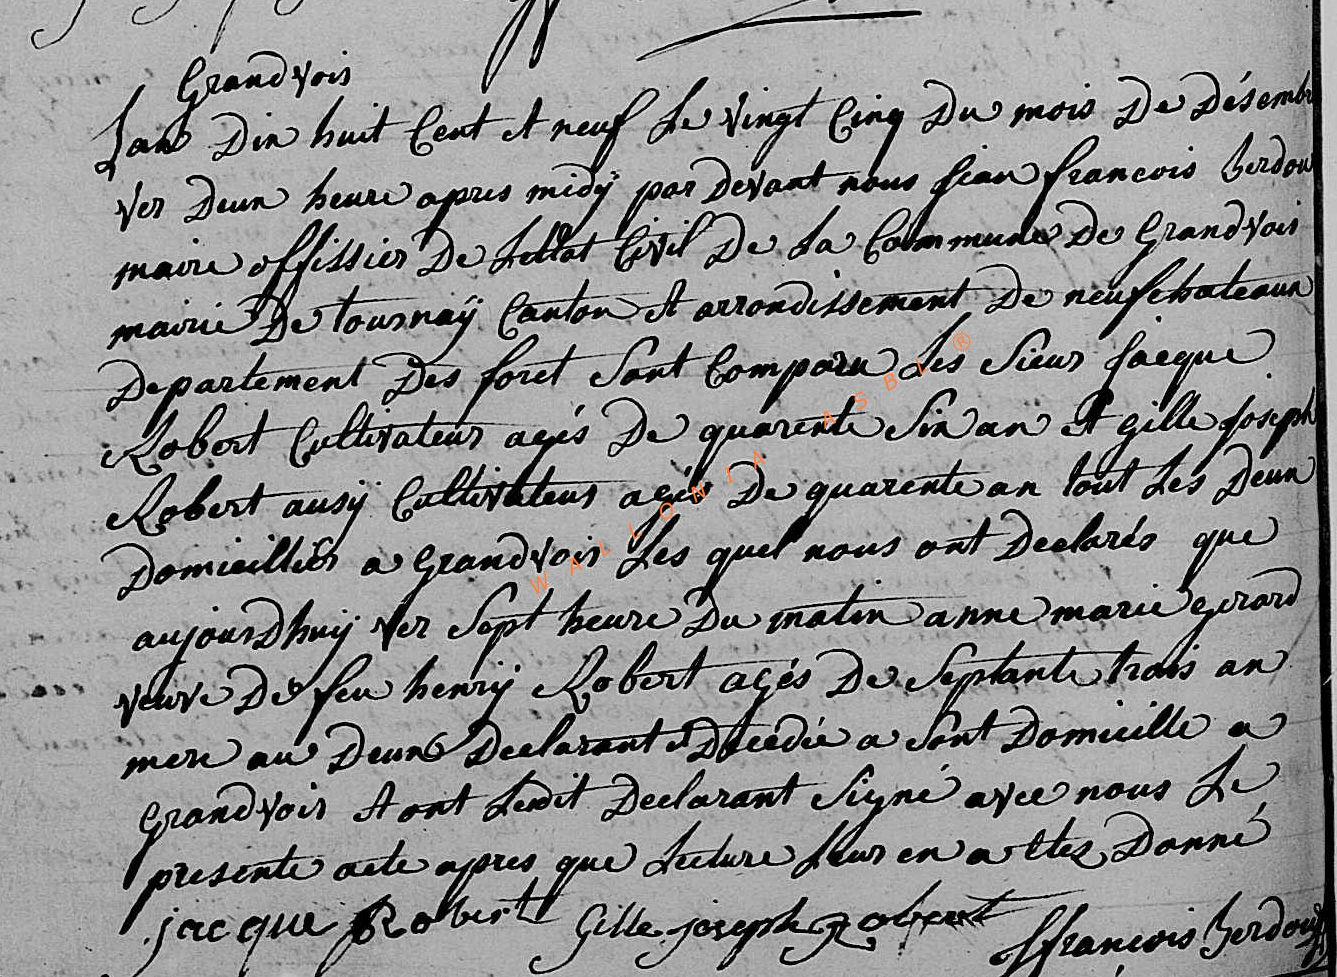 Grandvoir
Lan Dix huit Cent et neuf Le vingt Cinq Du mois De Désembr
ver Deux heure apres midÿ par Devant nous jean francois
maire offissier De Lettat Civil De La Commune De Grandvoir
mairie De tournaÿ Canton et arrondissement De neufchateaux
Departement Des foret Sont Comparu Les Sieur jacque
Robert Cultivateur agés De quarente Six an et gille joseph
Robert ausÿ Cultivateur agés De quarente an tout Les Deux
Domicilliés a grandvoir Les quel nous ont Declarés que
aujourDhuÿ ver Sept heure Du matin anne marie gerard
veuve De feu henrÿ Robert agés De Septante trois an
mere au Deux Declarant et Decedée a Sont Domicille a
grandvoir et ont Ledit Declarant Signé avec nous Le
presente acte apres que Lecture Leur en a etez Donné
jacque Robert Gille joseph Robert françois
WALLONIA ASBL ®